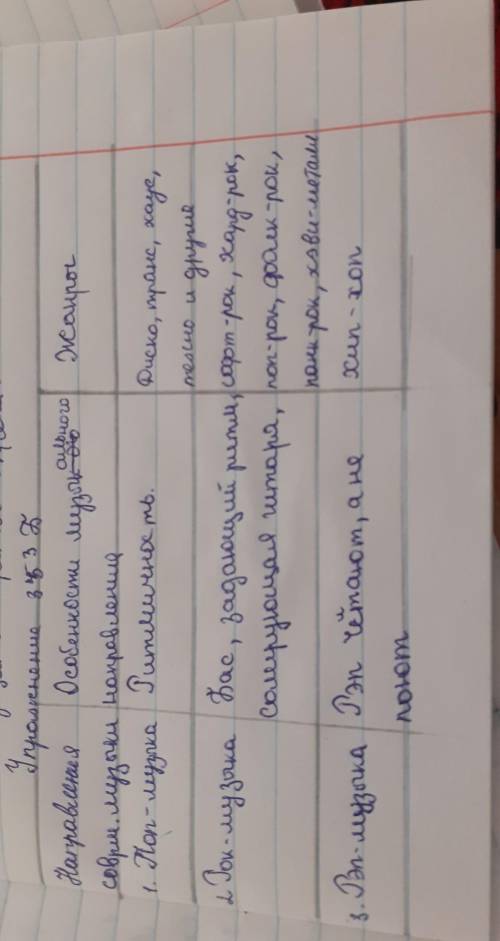 Упражнение 353 Б
Направления соврм. музыки
Особенности музыкального направления
Жанры
1. Поп-музыка
Ритмичность.
Диско, транс, хаус,
техно и другие
2. Рок-музыка
Бас, задающий ритм,
солирующая гитара,
софт-рок, хард-рок,
поп-рок, фолк-рок,
панк-рок, хэви-метали
3. Рэп-музыка
Рэп чётают, а не
поют
хип-хоп